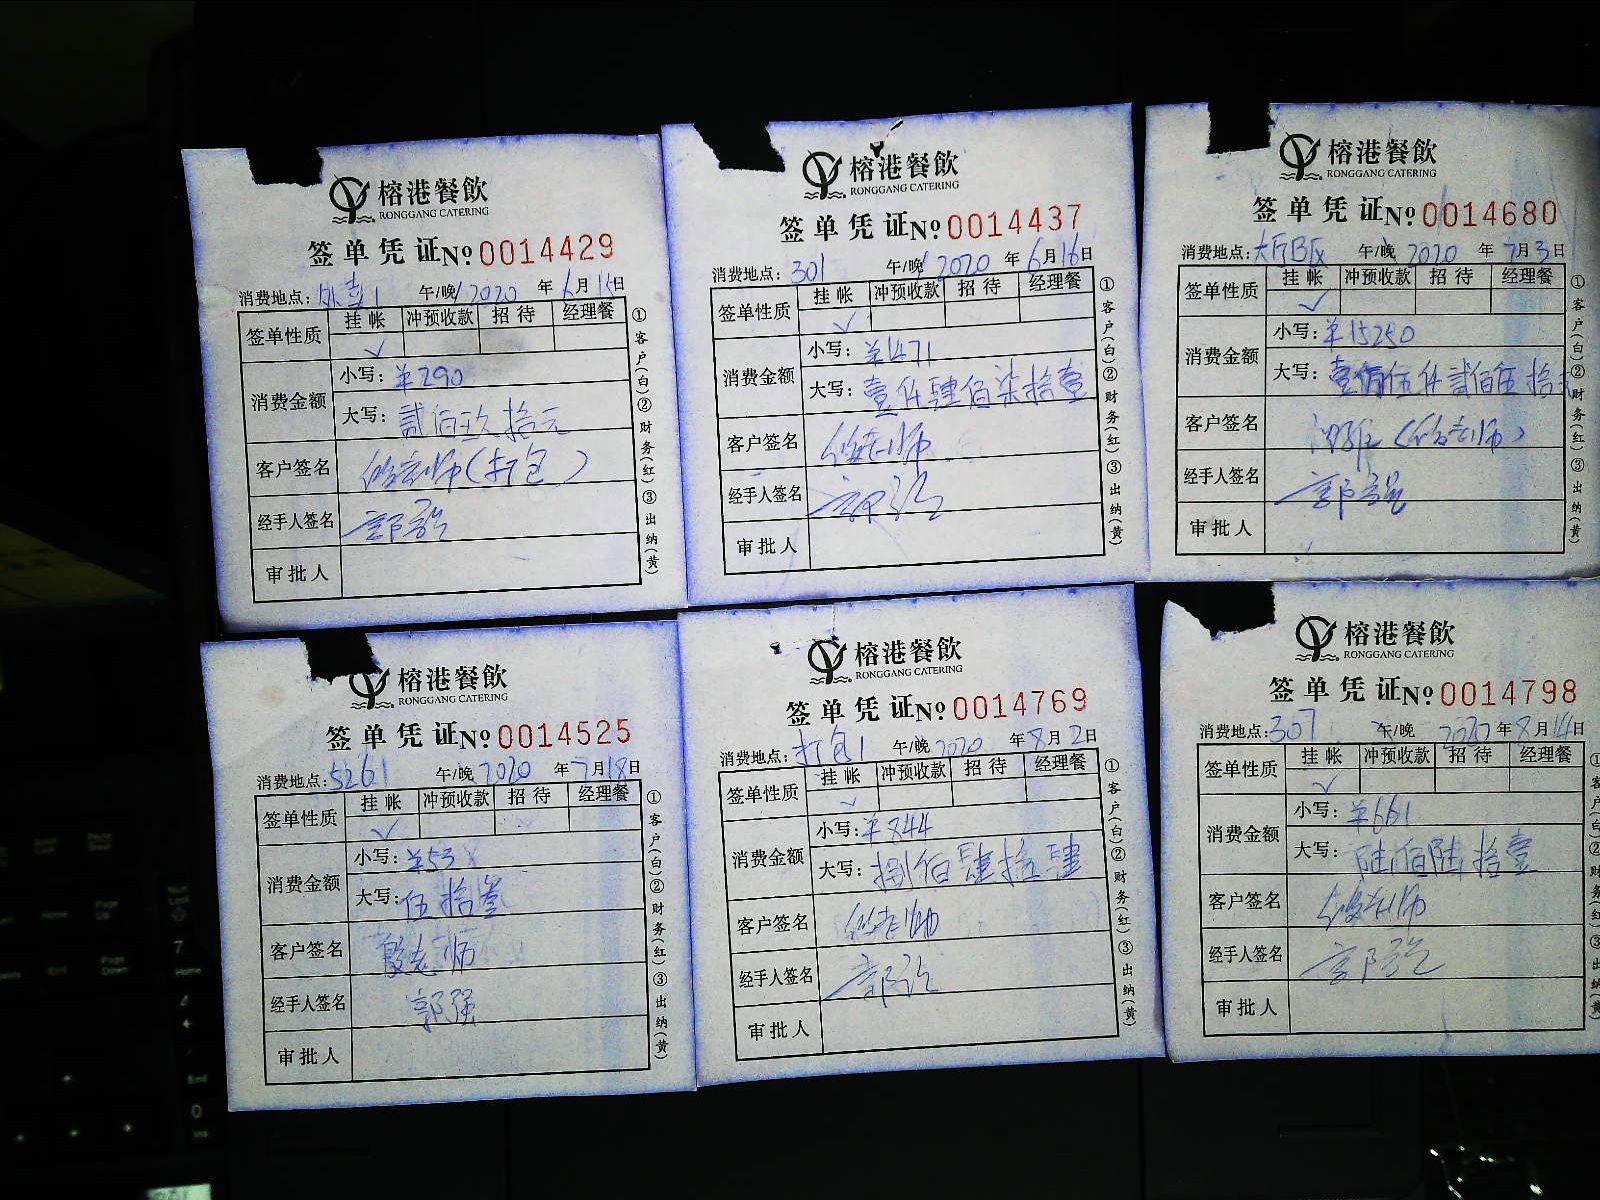 榕港餐飲
RONGGANG CATERING
签单凭证№ 0014429
消费地点: 午/晚 2020 年 6月15日
签单性质 挂帐 冲预收款 招待 经理餐
✓
消费金额 小写: ¥290
大写: 贰佰玖拾元
客户签名 老师(打包)
经手人签名 郭强
审批人
①客户(白)②财务(红)③出纳(黄)
榕港餐飲
RONGGANG CATERING
签单凭证№ 0014437
消费地点: 301 午/晚 2020 年 6月16日
签单性质 挂帐 冲预收款 招待 经理餐
✓
消费金额 小写: ¥1471
大写: 壹仟肆佰柒拾壹
客户签名 老师
经手人签名 郭强
审批人
①客户(白)②财务(红)③出纳(黄)
榕港餐飲
RONGGANG CATERING
签单凭证№ 0014680
消费地点: 大厅B区 午/晚 2020 年 7月3日
签单性质 挂帐 冲预收款 招待 经理餐
✓
消费金额 小写: ¥15250
大写: 伍仟贰佰伍拾
客户签名 老师
经手人签名 郭强
审批人
①客户(白)②财务(红)③出纳(黄)
榕港餐飲
RONGGANG CATERING
签单凭证№ 0014525
消费地点: 5261 午/晚 2020 年 7月18日
签单性质 挂帐 冲预收款 招待 经理餐
✓
消费金额 小写: ¥53
大写: 伍拾叁
客户签名 殷老师
经手人签名 郭强
审批人
①客户(白)②财务(红)③出纳(黄)
榕港餐飲
RONGGANG CATERING
签单凭证№ 0014769
消费地点: 打包1 午/晚 2020 年 8月2日
签单性质 挂帐 冲预收款 招待 经理餐
✓
消费金额 小写: ¥844
大写: 捌佰肆拾肆
客户签名 老师
经手人签名 郭强
审批人
①客户(白)②财务(红)③出纳(黄)
榕港餐飲
RONGGANG CATERING
签单凭证№ 0014798
消费地点: 307 午/晚 2020 年 8月14日
签单性质 挂帐 冲预收款 招待 经理餐
✓
消费金额 小写: ¥661
大写: 陆佰陆拾壹
客户签名 老师
经手人签名 郭强
审批人